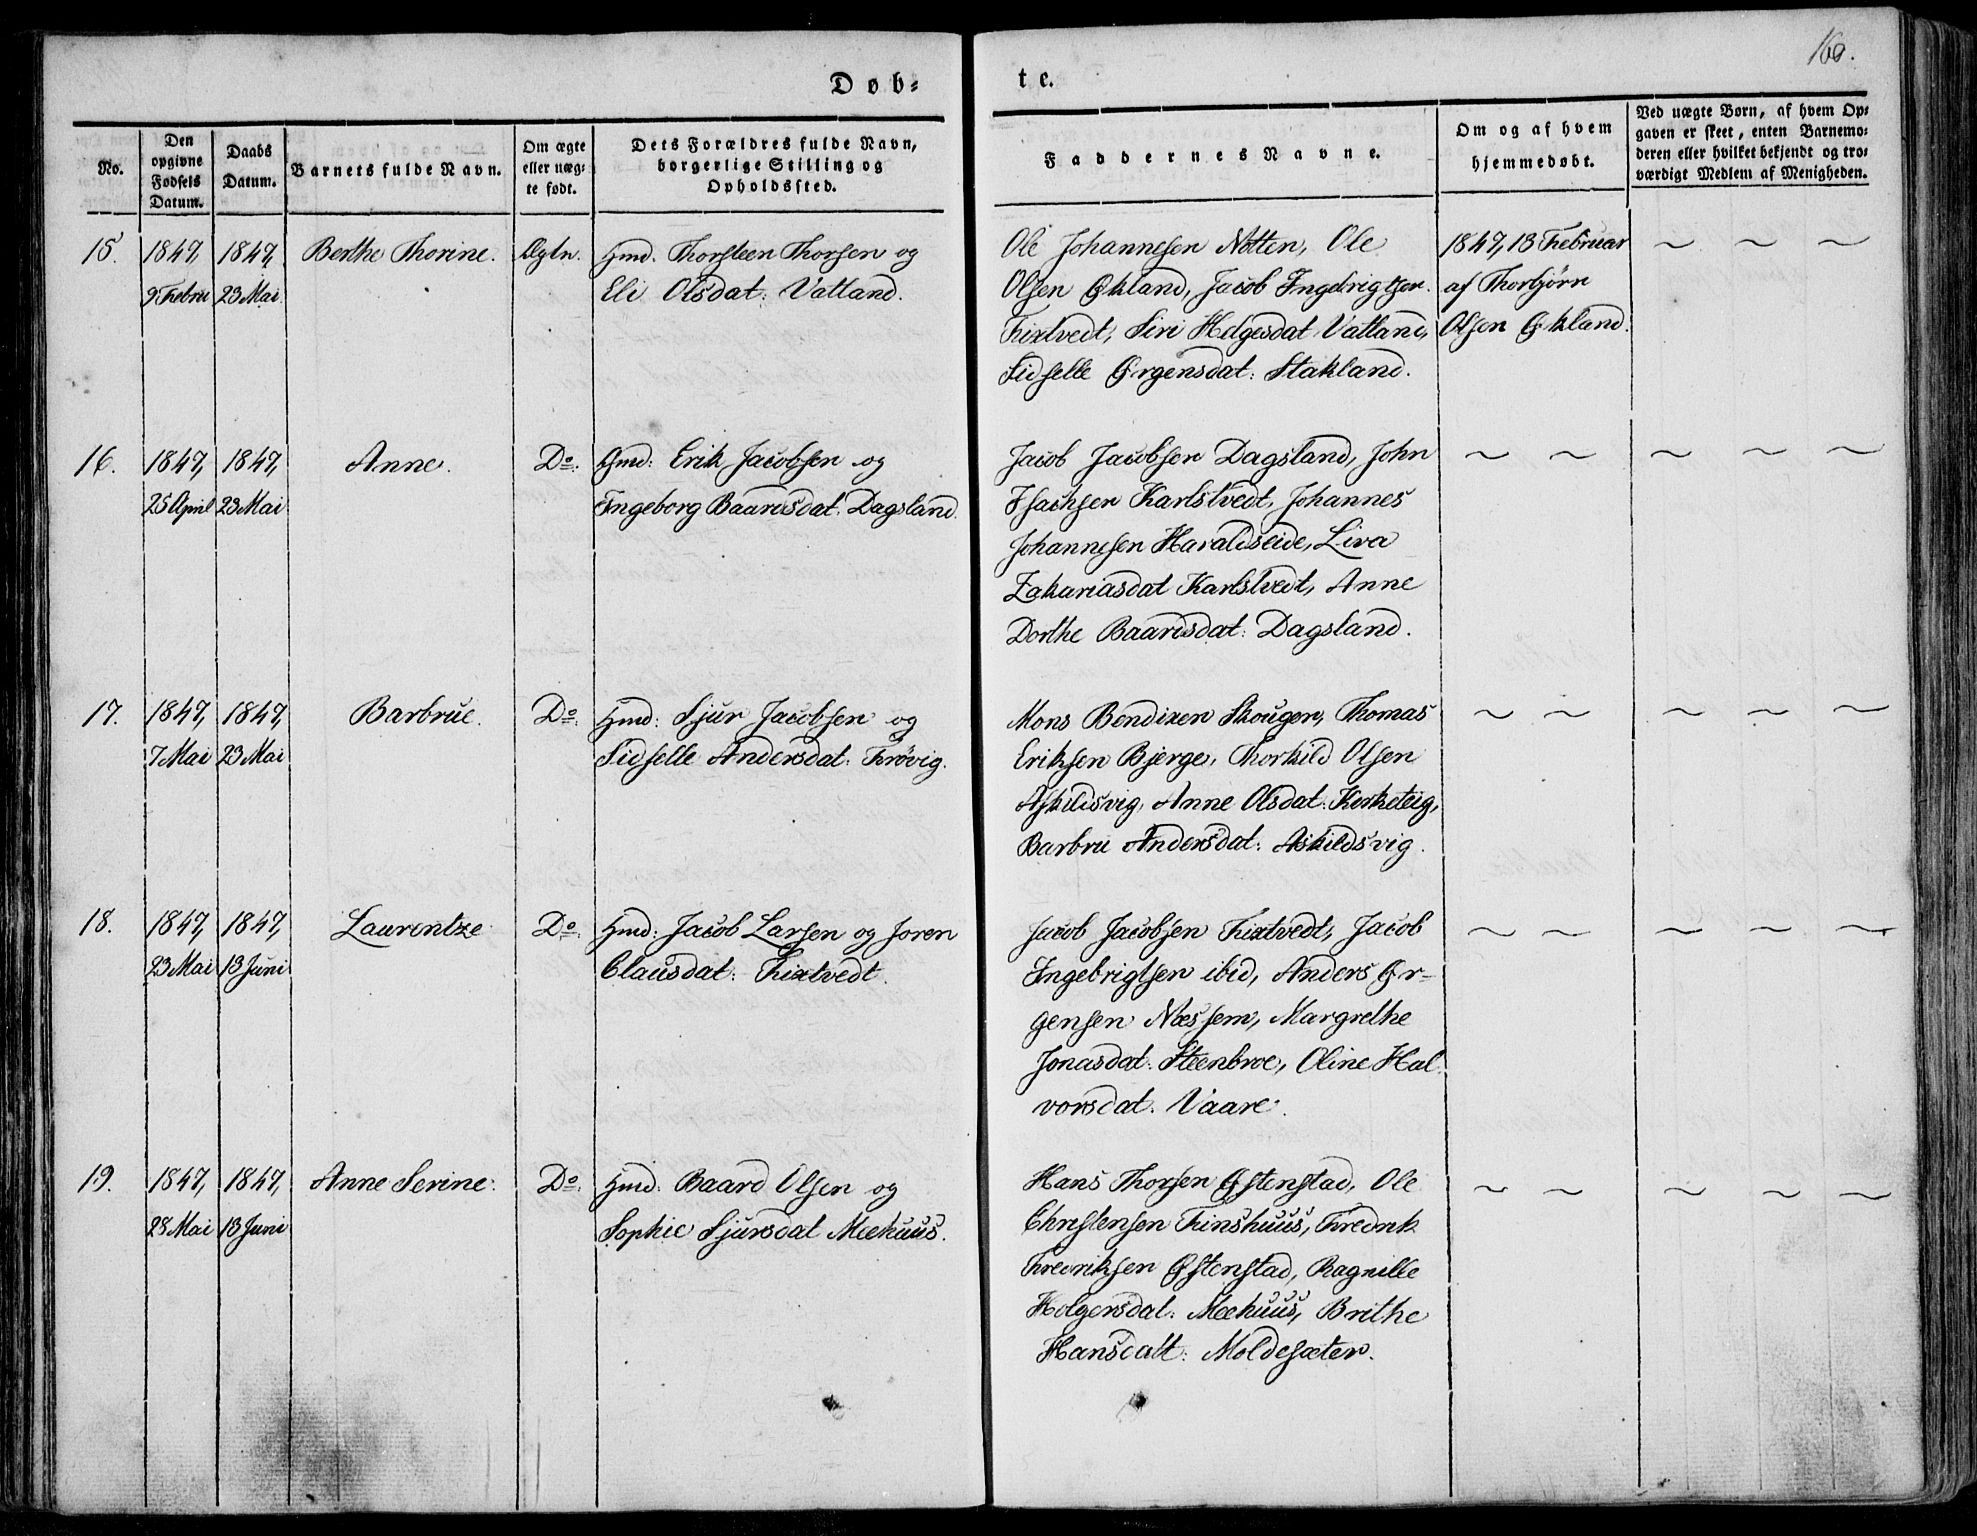 160.
Døb-
te.
No.
Den opgivne Fødsels Datum.
Daabs Datum.
Barnets fulde Navn.
Om ægte eller uæg- te født.
Dets Forældres fulde Navn, borgerlige Stilling og Opholdssted.
Faddernes Navne.
Om og af hvem hjemmedøbt.
Ved uægte Børn, af hvem Op- gaven er skeet, enten Barnemo- deren eller hvilket bekjendt og tro- værdigt Medlem af Menigheden.
15. 1847, 1847, Berthe Thorine. Ægtn. Gmd. Thorsteen Thorsen og
9 Febru 23 Mai Eli Olsdat: Vatland.
Ole Johannesen Notten, Ole
Olsen Økland, Jacob Ingebrigtsen
Fixtvedt, Siri Helgesdat Vatland,
Sidselle Ørgensdat: Stakland.
1847, 13 Februar
af Thorbjørn
Olsen Økland.
~ ~ ~
16. 1847, 1847, Anne. Do. Gmd: Erik Jacobsen og
25 April 23 Mai Ingeborg Baardsdat: Dagsland.
Jacob Jacobsen Dagsland, John
Isachsen Karlstvedt, Johannes
Johannesen Haraldseide, Liva
Zakariasdat Karlstvedt, Anne
Dorthe Baardsdat: Dagsland.
~ ~ ~ ~ ~
17. 1847, 1847, Barbrue. Do. Gmd: Sjur Jacobsen og
7 Mai 23 Mai Sidselle Andersdat: Frøvig.
Mons Bendixen Skougen, Thomas
Eriksen Bjerge, Thorkild Olsen
Askildsvig, Anne Olsdat: Kerketeig,
Barbru Andersdat: Askildsvig.
~ ~ ~ ~ ~
18. 1847, 1847, Laurentze Do. Gmd: Jacob Larsen og Joren
23 Mai 13 Juni Clausdat: Fixtvedt.
Jacob Jacobsen Fixtvedt, Jacob
Ingebrigtsen ibid, Anders Ør-
gensen Næssem, Margrethe
Jonasdat: Steenbroe, Oline Hal
vorsdat. Vaare.
~ ~ ~ ~ ~
19. 1847, 1847, Anne Serine. Do. Gmd: Baard Olsen og
28 Mai 13 Juni Sophie Sjursdat Meehuus.
Hans Thorsen Østenstad, Ole
Christensen Finshuus, Fredrik
Fredriksen Østenstad, Ragnille
Holgersdat: Meehuus, Brithe
Hansdatt: Moldesæter.
~ ~ ~ ~ ~